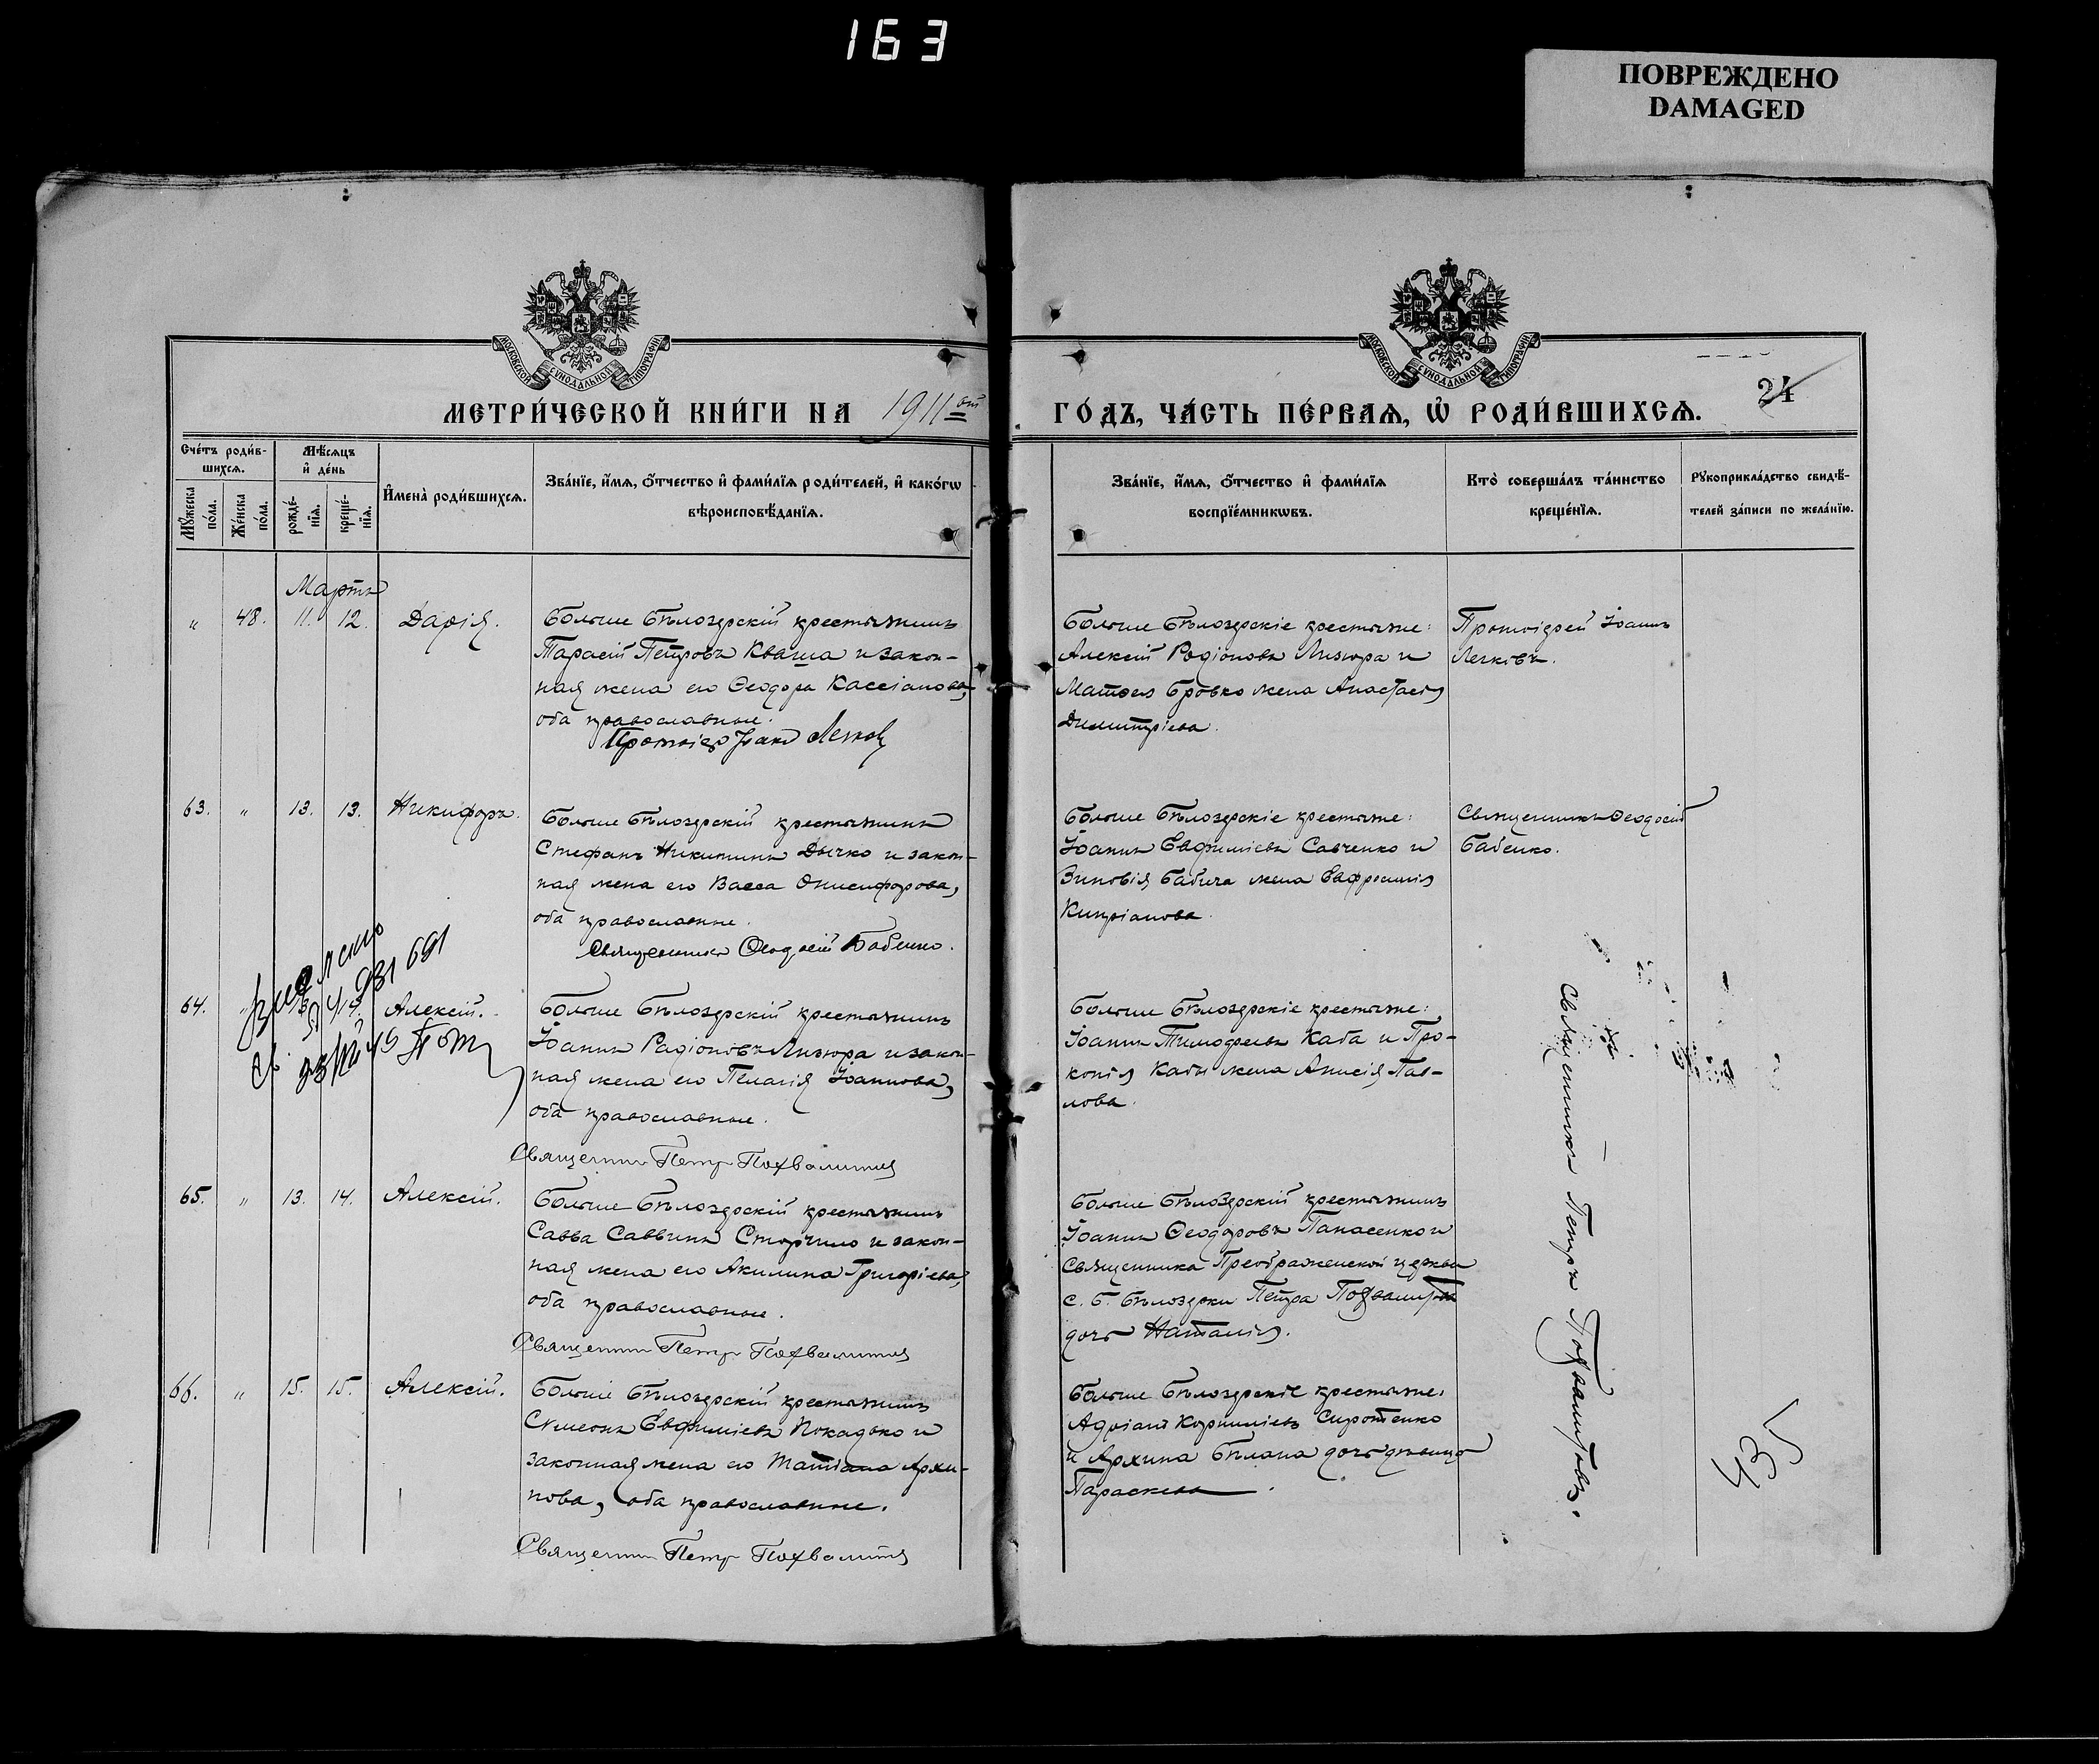 163
ПОВРЕЖДЕНО
DAMAGED
МОСКОВСКОЙ СѴНОДАЛЬНОЙ ТИПОГРАФІИ
МОСКОВСКОЙ СѴНОДАЛЬНОЙ ТИПОГРАФІИ
МЕТРИ́ЧЕСКОЙ КНИ́ГИ НА 1911ый
ГО́ДЪ, ЧА́СТЬ ПЕ́РВАѦ, Ѡ РОДИ́ВШИХСѦ.
24
Сче́тъ роди́в-
шихсѧ.
Мѣ́сѧцъ
и҆ де́нь
Мꙋ́жеска
по́ла.
Же́нска
по́ла.
рожде́-
нїѧ.
креще́-
нїѧ.
И҆мена̀ роди́вшихсѧ.
Зва́нїе, и҆́мѧ, ѻ҆́тчество и҆ фами́лїѧ роди́телей, и҆ како́гѡ
вѣроисповѣ́данїѧ.
Зва́нїе, и҆́мѧ, ѻ҆́тчество и҆ фами́лїѧ
воспрїе́мникѡвъ.
Кто̀ соверша́лъ та́инство
креще́нїѧ.
Рꙋкоприкла́дство свидѣ́-
телей за́писи по жела́нїю.
Мартъ
" 48. 11. 12. Дарія.
Больше Бѣлозерскій крестьянинъ
Тарасій Петровъ Кваша и закон-
ная жена его Ѳеодора Кассіанова,
оба православные.
Протоіер Іоанн Легков
Больше Бѣлозерскіе крестьяне:
Алексій Родіоновъ Лизюра и
Матѳея Бровко жена Анастасія
Димитріева.
Протоіерей Іоаннъ
Легковъ.
63. " 13. 13. Никифоръ.
Больше Бѣлозерскій крестьянинъ
Стефанъ Никитинъ Дычко и закон-
ная жена его Васса Онисифорова,
оба православные.
Священникъ Ѳеодосій Бабенко.
Больше Бѣлозерскіе крестьяне:
Іоаннъ Евфиміевъ Савченко и
Зиновія Бабича жена Евфросинія
Кипріанова.
Священникъ Ѳеодосій
Бабенко.
64. " Алексій.
Больше Бѣлозерскій крестьянинъ
Іоаннъ Радіоновъ Лизюра и закон-
ная жена его Пелагія Іоаннова,
оба православные.
Священник Петр Похвалитов
Больше Бѣлозерскіе крестьяне:
Іоаннъ Тимофеевъ Каба и Про-
копія Кабы жена Анисія Пав-
лова.
Священникъ Петръ Похвалитовъ.
65. " 13. 14. Алексій.
Больше Бѣлозерскій крестьянинъ
Савва Саввинъ Сторчило и закон-
ная жена его Акилина Григоріева,
оба православные.
Священник Петр Похвалитов
Больше Бѣлозерскій крестьянинъ
Іоаннъ Ѳеодоровъ Панасенко и
священника Преображенской церкви
с. Б. Бѣлозерки Петра Похвалитова
дочь Наталія.
66. " 15. 15. Алексій.
Больше Бѣлозерскій крестьянинъ
Симеонъ Евфиміевъ Покадько и
законная жена его Татіана Архи-
пова, оба православные.
Священник Петр Похвалитов
Больше Бѣлозерскіе крестьяне:
Адріанъ Корниліевъ Сиротенко
и Архипа Бѣлана дочь дѣвица
Параскева.
435